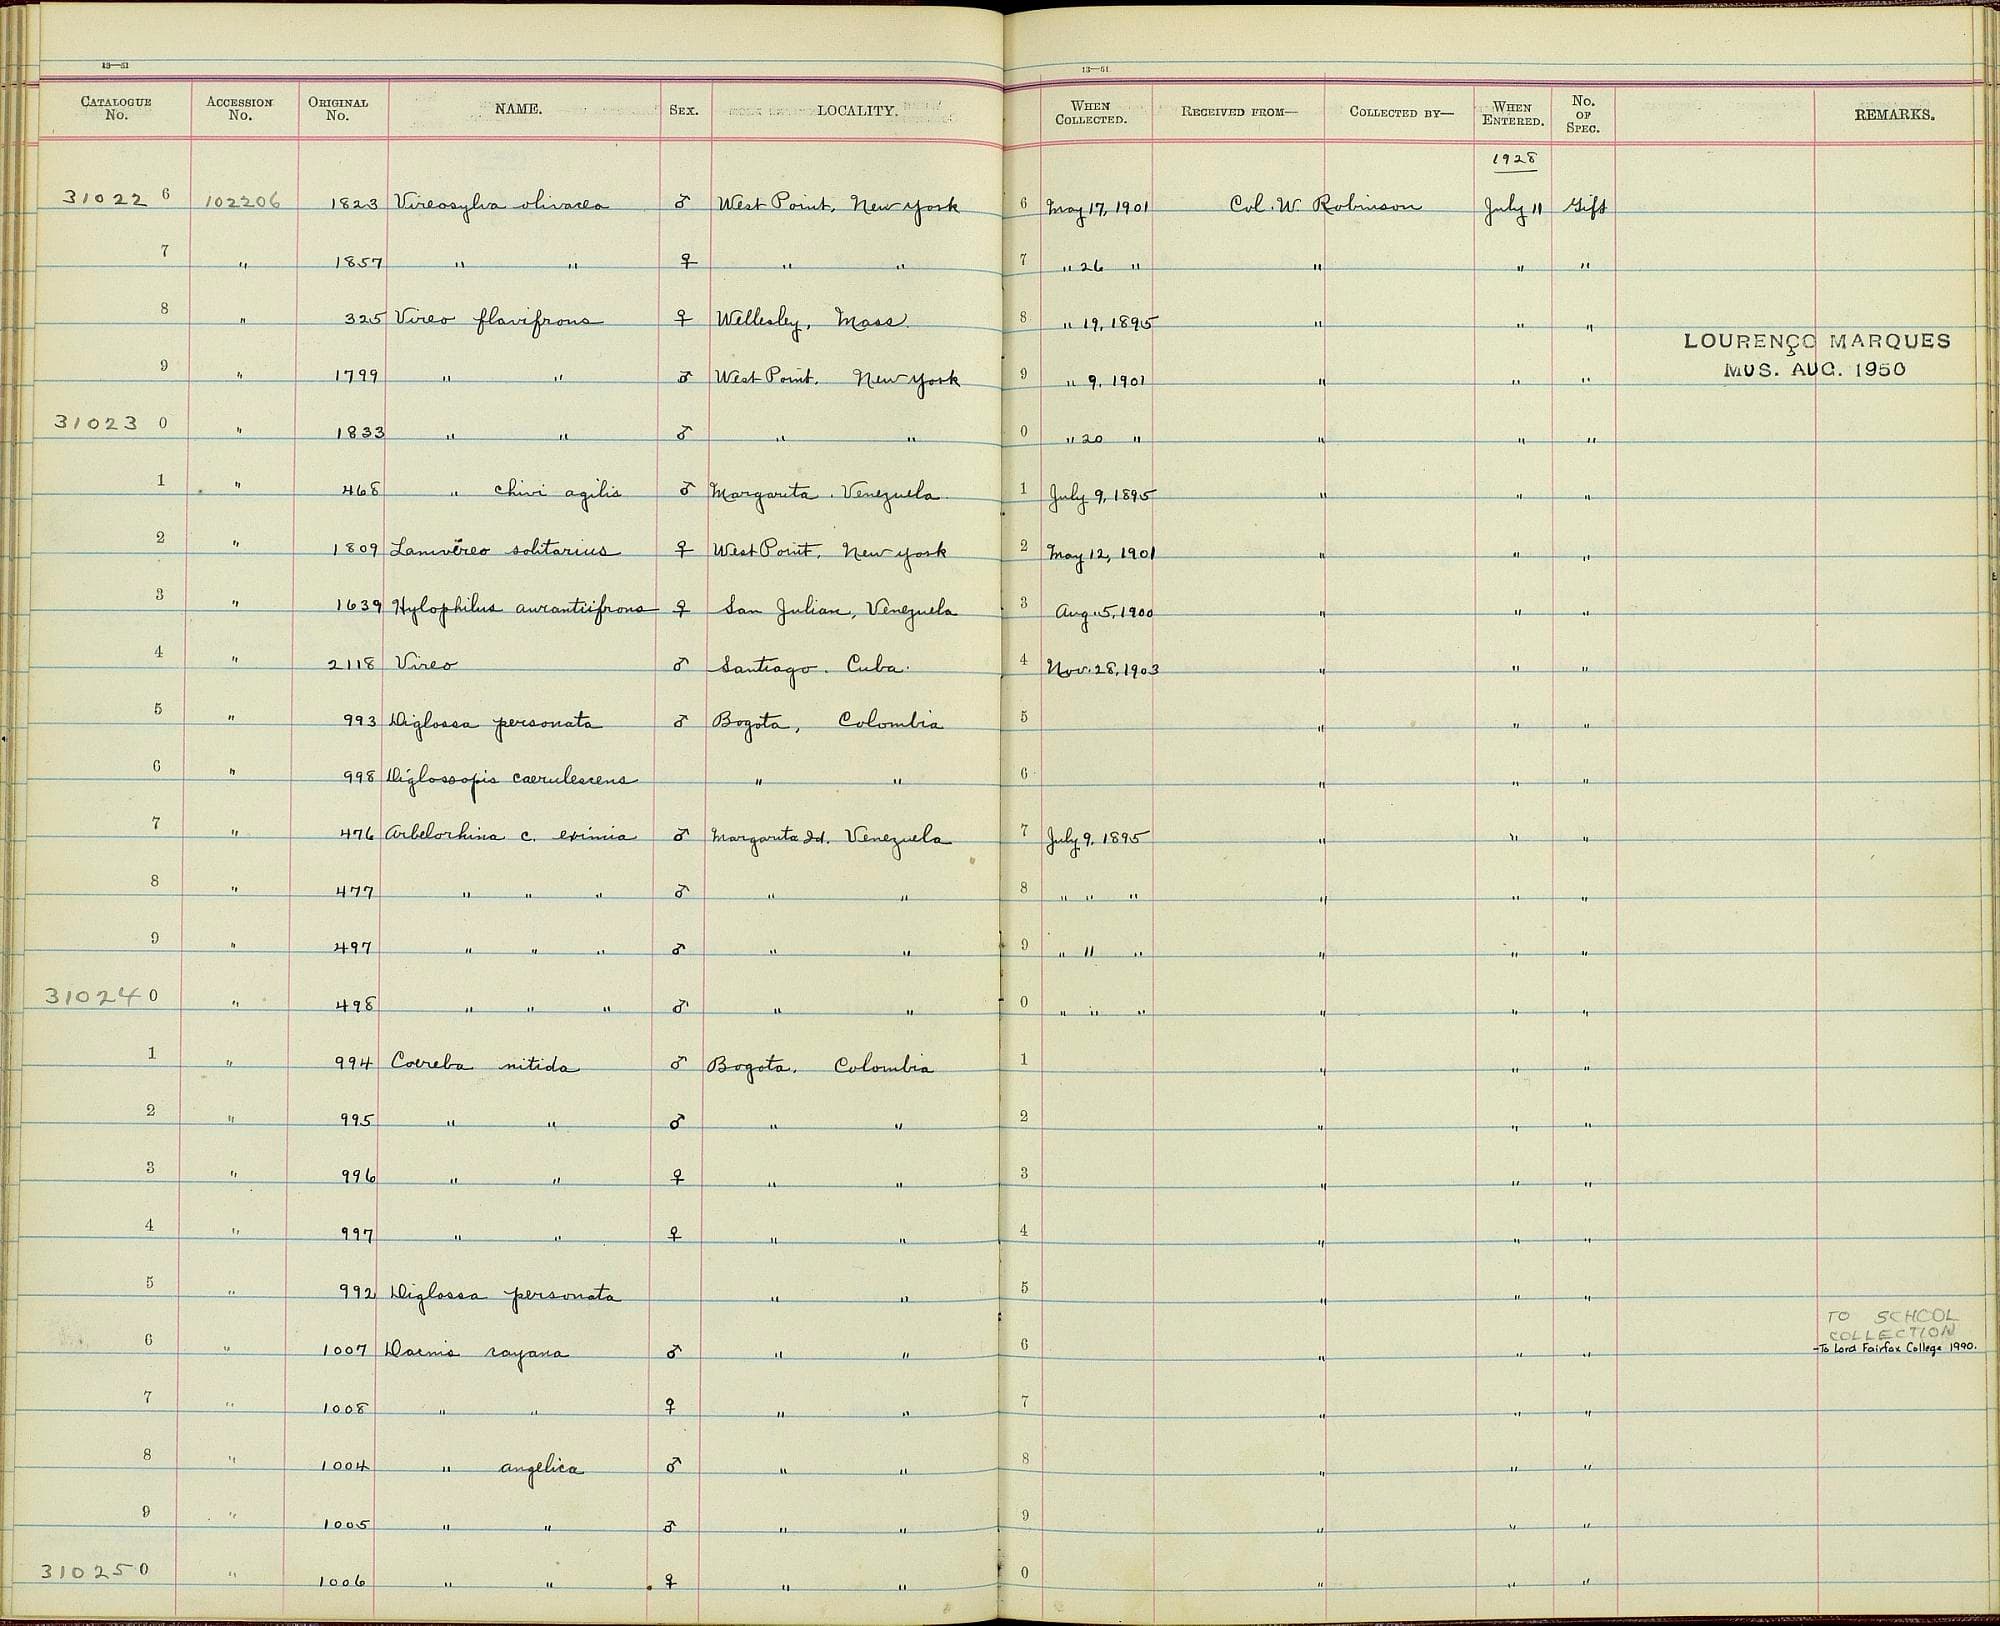 13—51
13—51
CATALOGUE No. ACCESSION No. ORIGINAL No. NAME. SEX. LOCALITY. WHEN COLLECTED. RECEIVED FROM— COLLECTED BY— WHEN ENTERED. No. OF SPEC. REMARKS.
1928
310226 102206 1823 Vireosylva olivacea ♂ West Point, New York 6 May 17, 1901 Col. W. Robinson July 11 Gift
7 " 1857 " " ♀ " " 7 " 26 " " " "
8 " 325 Vireo flavifrons ♀ Wellesley, Mass. 8 " 19, 1895 " " "
LOURENÇO MARQUES
MUS. AUG. 1950
9 " 1799 " " ♂ West Point, New York 9 " 9, 1901 " " "
310230 " 1833 " " ♂ " " 0 " 20 " " " "
1 " 468 " chivi agilis ♂ Margarita, Venezuela. 1 July 9, 1895 " " "
2 " 1809 Lanivireo solitarius ♀ West Point, New York 2 May 12, 1901 " " "
3 " 1639 Hylophilus aurantiifrons ♀ San Julian, Venezuela 3 Aug. 5, 1900 " " "
4 " 2118 Vireo ♂ Santiago. Cuba. 4 Nov. 28, 1903 " " "
5 " 993 Diglossa personata ♂ Bogota, Colombia 5 " " "
6 " 998 Diglossopis caerulescens " " 6 " " "
7 " 476 Arbelorhina c. eximia ♂ Margarita Id. Venezuela 7 July 9, 1895 " " "
8 " 477 " " " ♂ " " 8 " " " " " "
9 " 497 " " " ♂ " " 9 " 11 " " " "
310240 " 498 " " " ♂ " " 0 " " " " " "
1 " 994 Coereba nitida ♂ Bogota. Colombia 1 " " "
2 " 995 " " ♂ " " 2 " " "
3 " 996 " " ♀ " " 3 " " "
4 " 997 " " ♀ " " 4 " " "
5 " 992 Diglossa personata " " 5 " " "
TO SCHOOL
COLLECTION
6 " 1007 Dacnis cayana ♂ " " 6 " " " -To Lord Fairfax College 1990.
7 " 1008 " " ♀ " " 7 " " "
8 " 1004 " angelica ♂ " " 8 " " "
9 " 1005 " " ♂ " " 9 " " "
310250 " 1006 " " ♀ " " 0 " " "